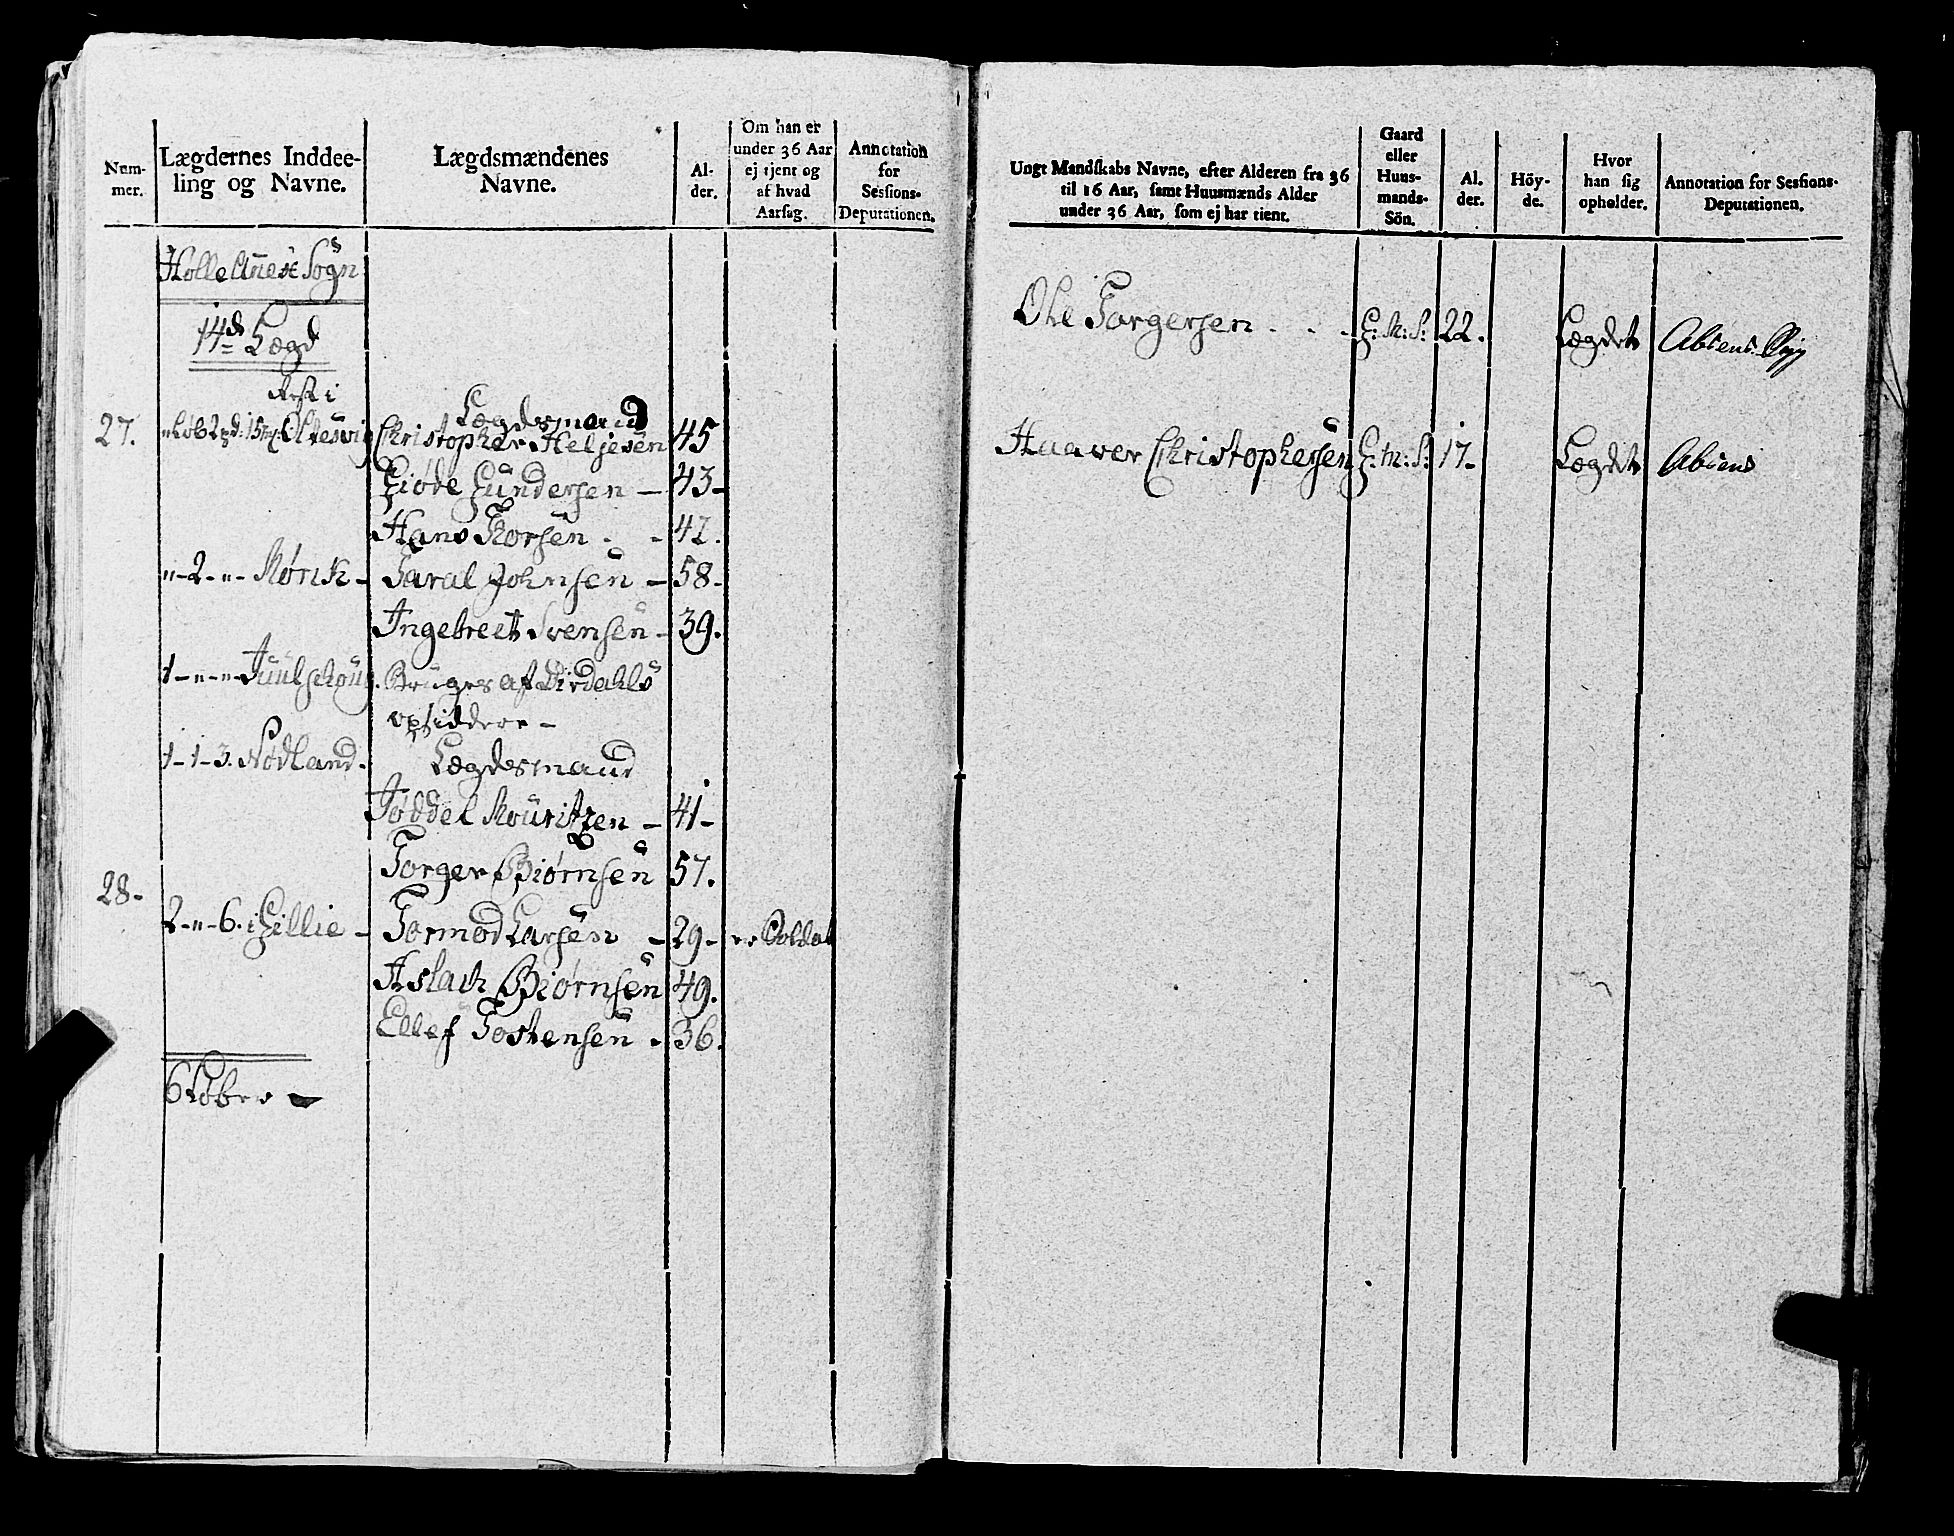 Num-
mer.
Lægdernes Inddee-
ling og Navne.
Lægdsmændenes
Navne.
Al-
der.
Om han er
under 36 Aar
ej tjent og
af hvad
Aarsag.
Annotation
for
Sessions-
Deputationen.
14de Lægd
Rest i
Lægdesmand
27. Christopher Heljesen 45
Giøde Gundersen - 43-
Hans Thorsen - - 42.
"-2-"- Mørck - Taral Johnsen - 58-
Ingebreth Svensen - 39.
1-"-"- Juulskoug. Bruges af Dirdahls
opsiddere -
1-1-3. Nødland. Lægdesmand
Jøddel Mouritzen - 41-
Torger Biørnsen 57.
28-
2-"-6. i Gillie - Tormod Larsen - 29- er Soldat
Aslach Biørnsen 49.
Ellef Tostensen - 36.
6 Løber -
Ungt Mandskabs Navne, efter Alderen fra 36
til 16 Aar, samt Huusmænds Alder
under 36 Aar, som ej har tient.
Gaard
eller
Huus-
mands-
Sön.
Al.
der.
Höy-
de.
Hvor
han sig
opholder.
Annotation for Sessions-
Deputationen.
Ole Torgersen - - - G: M: S: 22. Lægdet Absens
Haaver Christophersen G: M: S: 17- Lægdet Absens